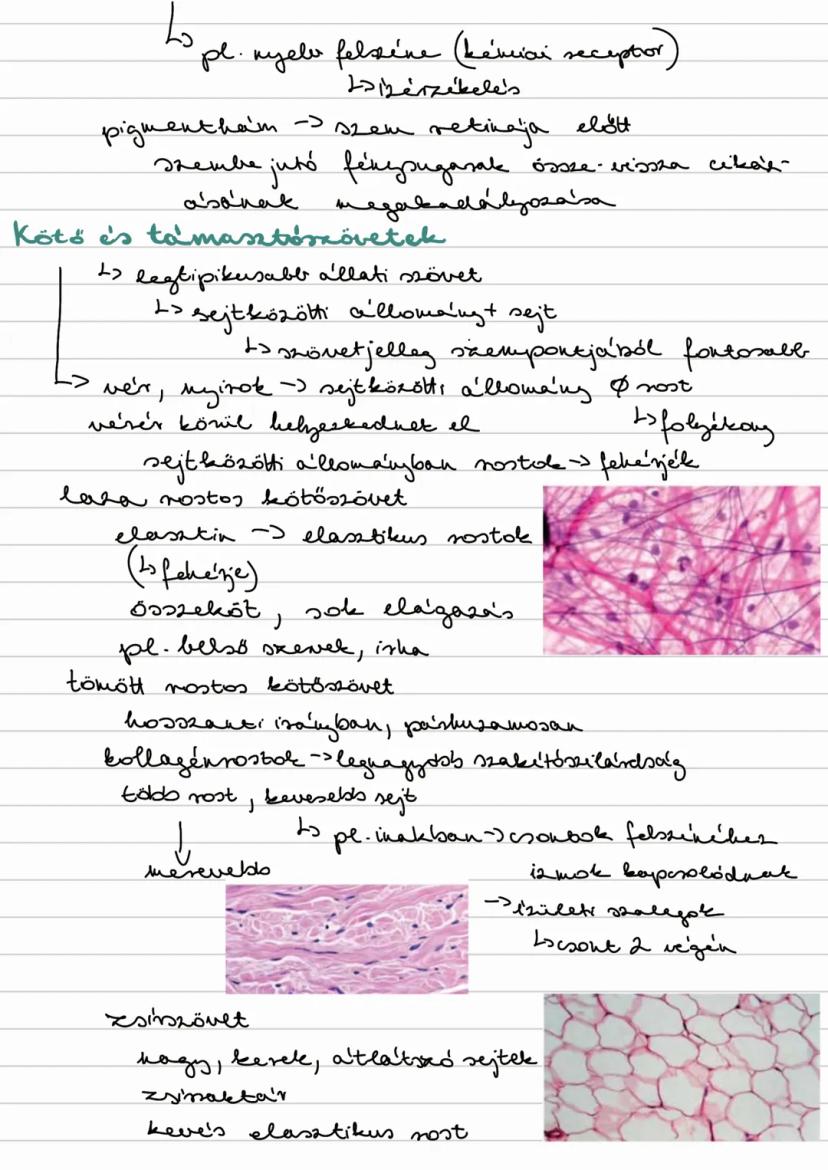 ↳ pl. nyelv felszíne (kémiai receptor)
↳ ízérzékelés
pigmenthám → szem retinája előtt
szembe jutó fénysugarak össze-vissza cikáz-
ásának megakadályozása
Kötő és támasztószövetek
↳ legtipikusabb állati szövet
↳ sejtközötti állomány + sejt
↳ szövetjelleg szempontjából fontosabb
↳ vér, nyirok → sejtközötti állomány Ø rost
vérér körül helyezkednet el ↳ folyékony
sejtközötti állományban rostok → fehérjék
laza rostos kötőszövet
elasztin → elasztikus rostok
(↳ fehérje)
összeköt, sok elágazás
pl. belső szervek, irha
tömött rostos kötőszövet
hosszanti irányban, párhuzamosan
kollagénrostok → legnagyobb szakítószilárdság
több rost, kevesebb sejt
↳ pl. inakban → csontok felszínéhez
merevebb izmok kapcsolódnak
→ ízületi szalagok
↳ csont 2 végén
zsírszövet
nagy, kerek, átlátszó sejtek
zsírraktár
kevés elasztikus rost